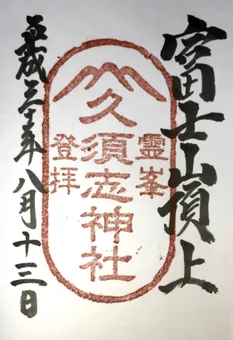 富士山頂上
霊峯
久須志神社
登拝
平成三十年八月十三日